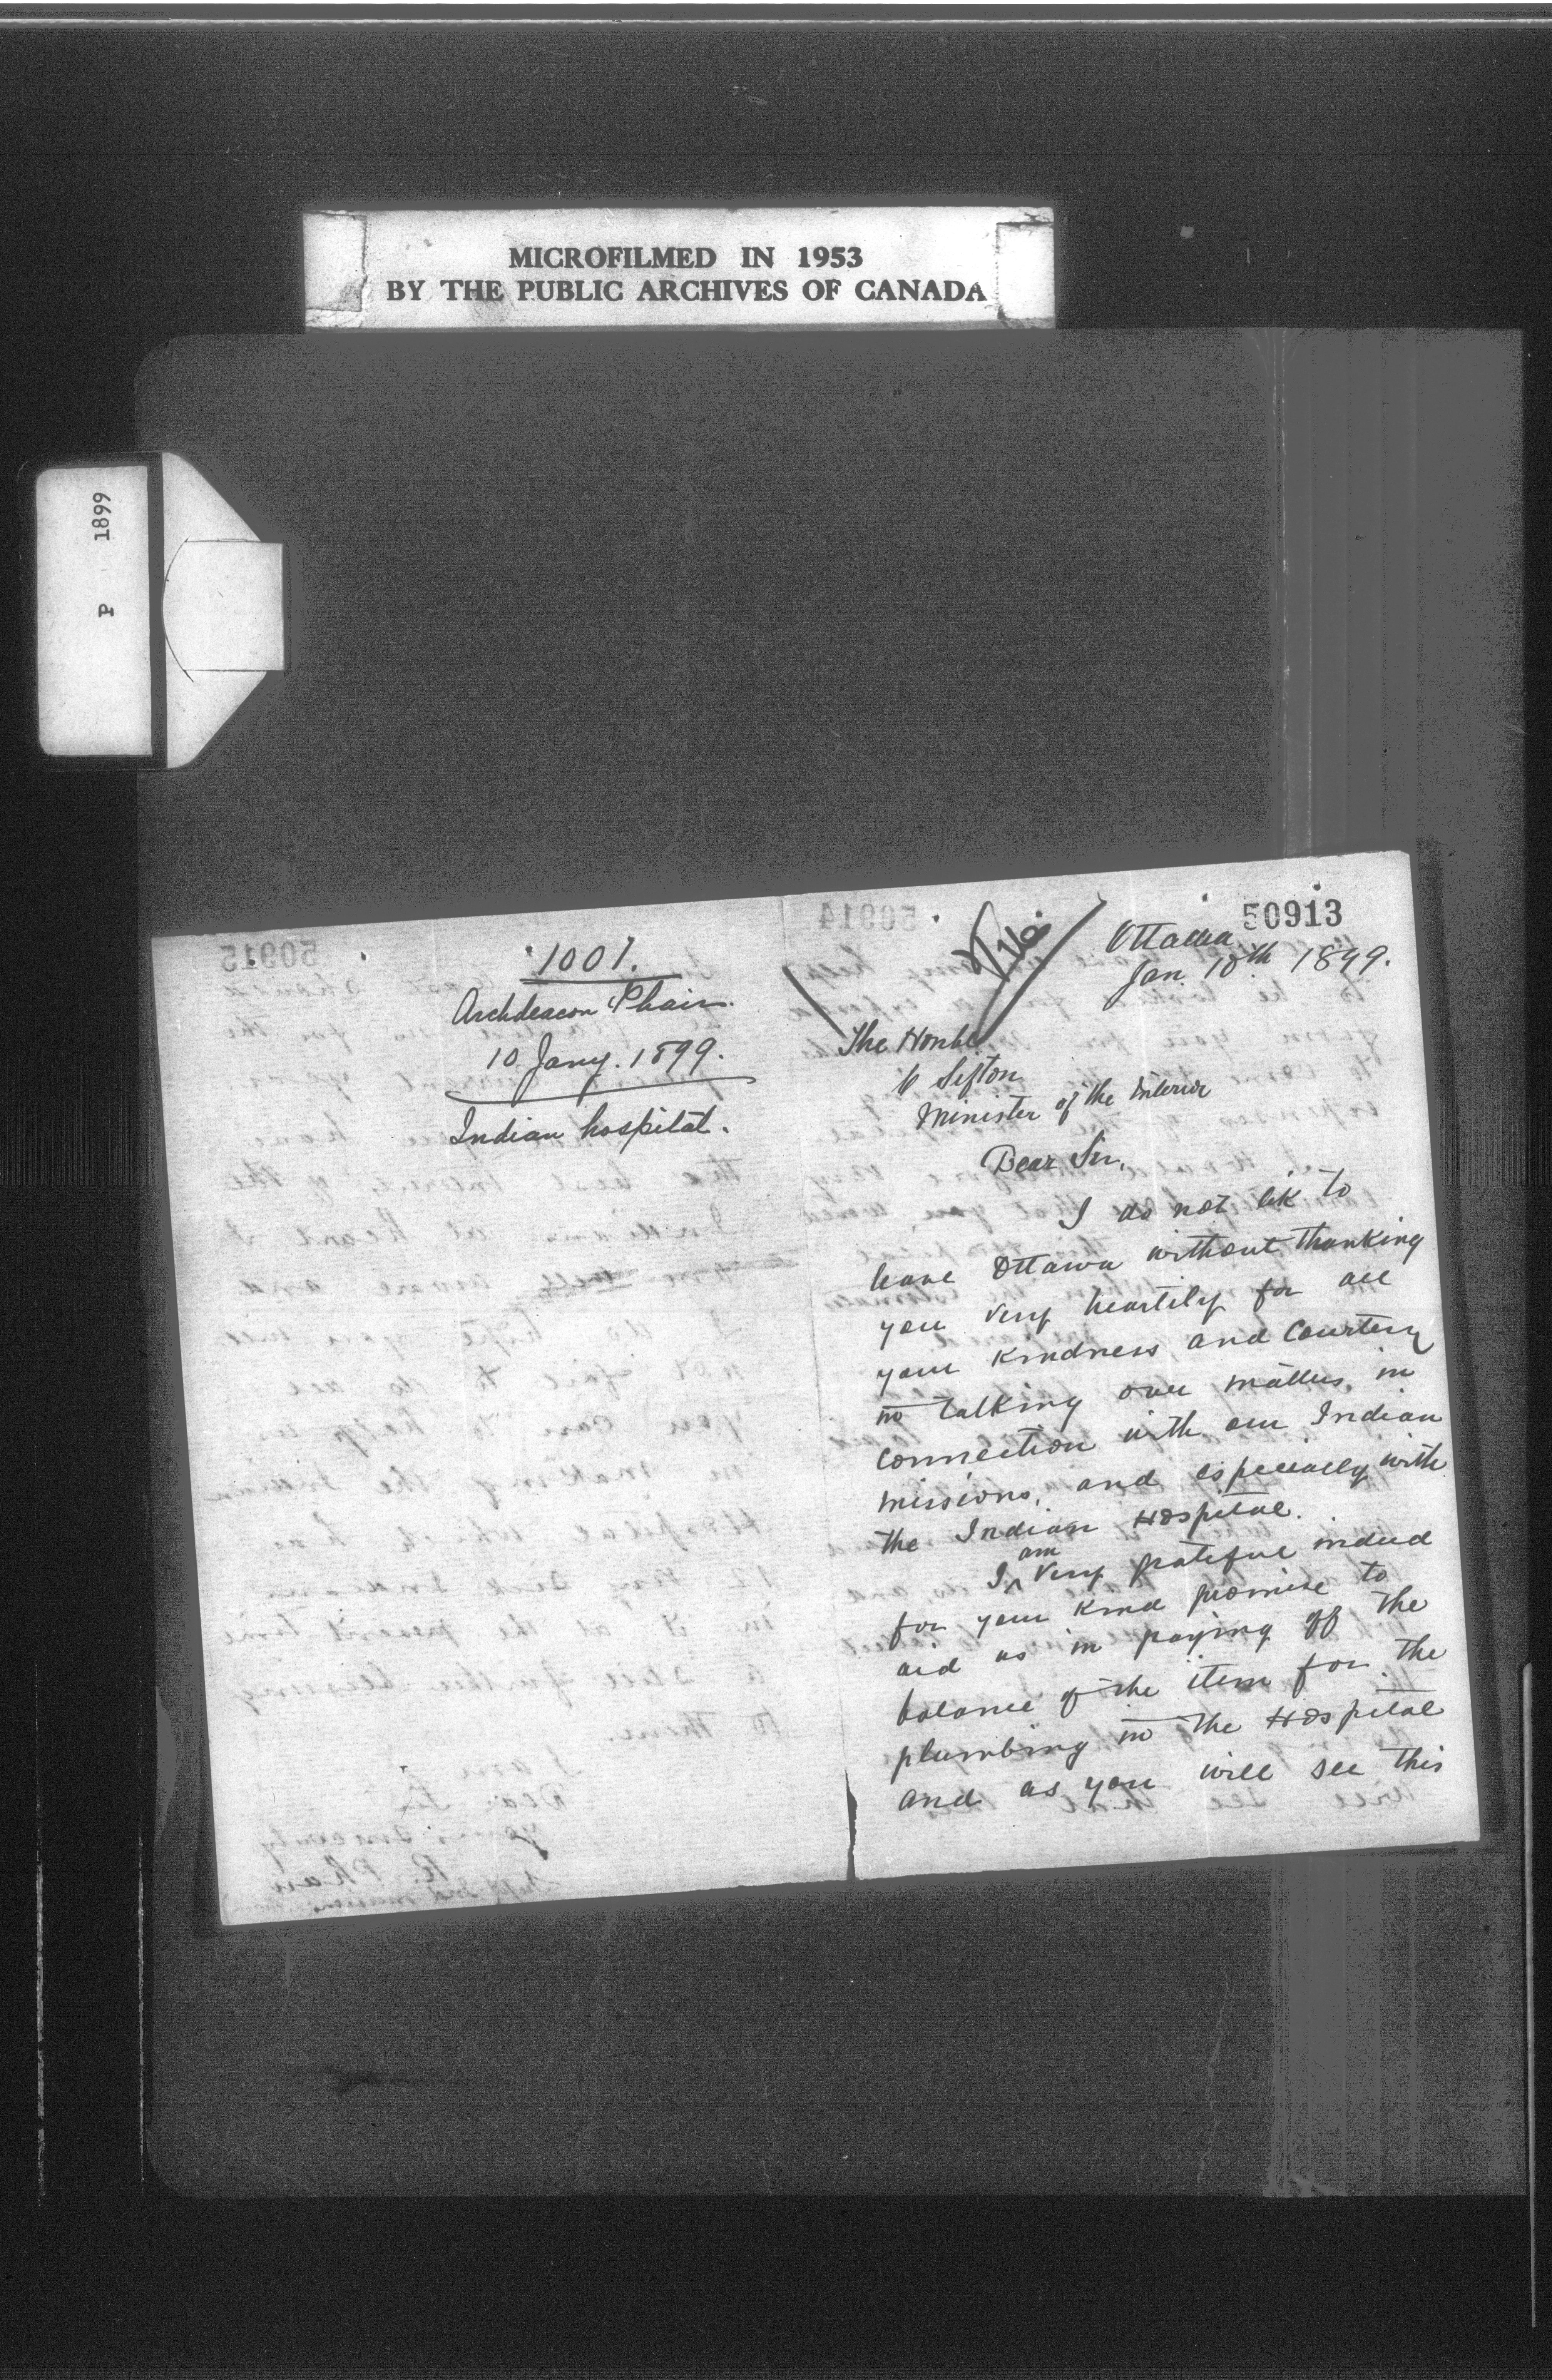 MICROFILMED IN 1953
BY THE PUBLIC ARCHIVES OF CANADA
P 1899
1001.
Archdeacon Phair.
10 Jany. 1899.
Indian hospital.
50913
Ottawa
Jan. 10th 1899.
The Honble
C Sifton
Minister of the Interior
Dear Sir,
I do not lik to
leave Ottawa without thanking
you very heartily for all
your kindness, and courtesy
in talking over matters, in
connection with our Indian
missions, and especially with
the Indian Hospital.
I am very grateful indeed
for your kind promise to
aid us in paying off the
balance of the item for the
plumbing in the Hospital
and as you will see this